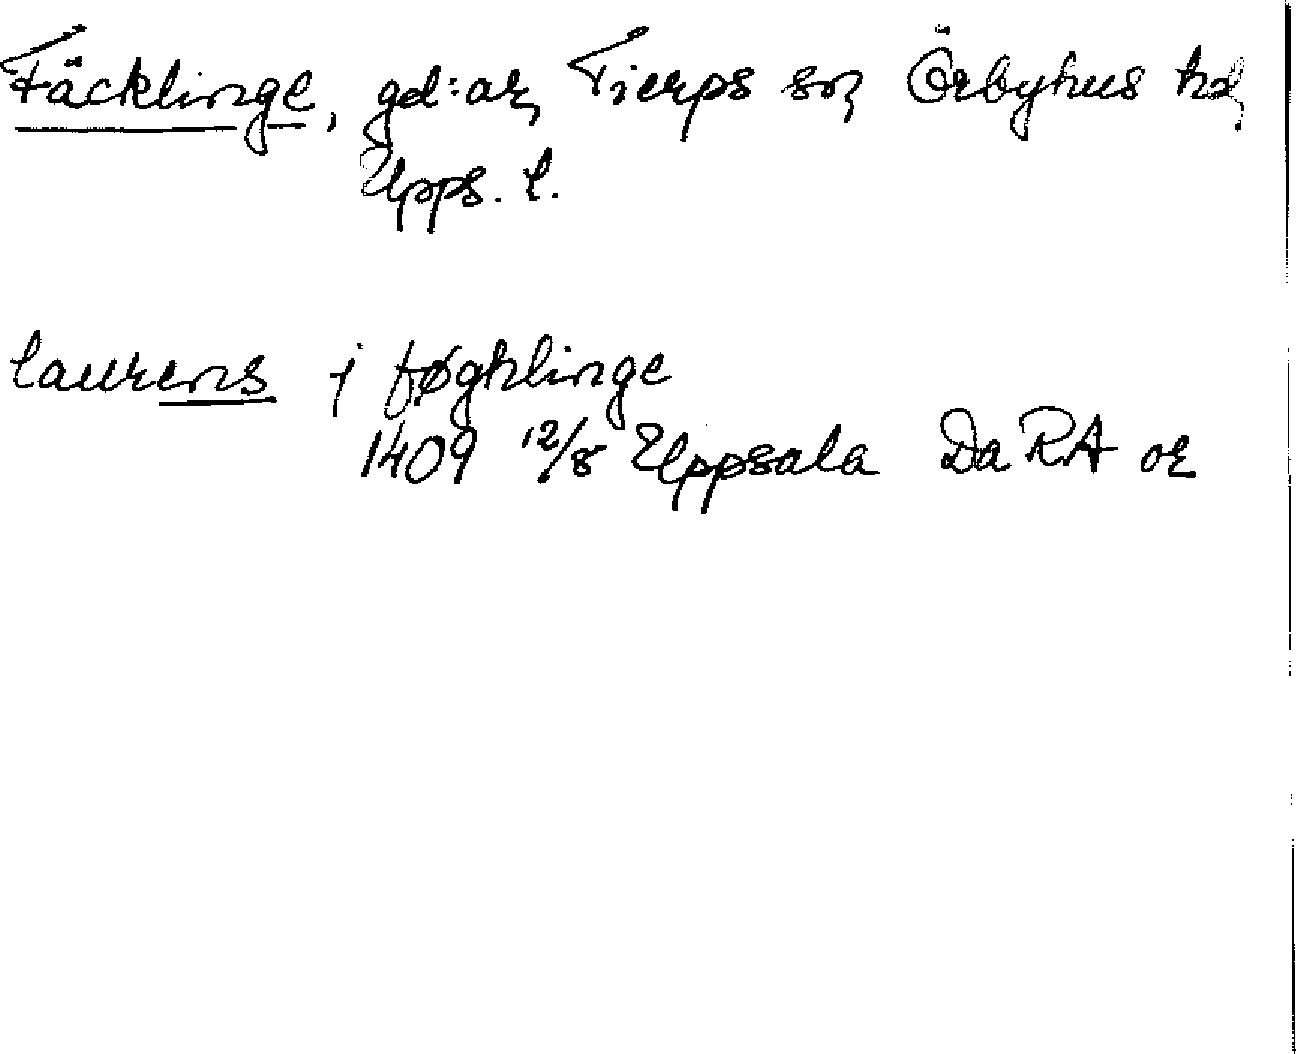 Fäcklinge, gd:ar, Tierps sn, Örbyhus hd,
Upps. l.
laurens j føghlinge
1409 12/8 Uppsala DaRA or